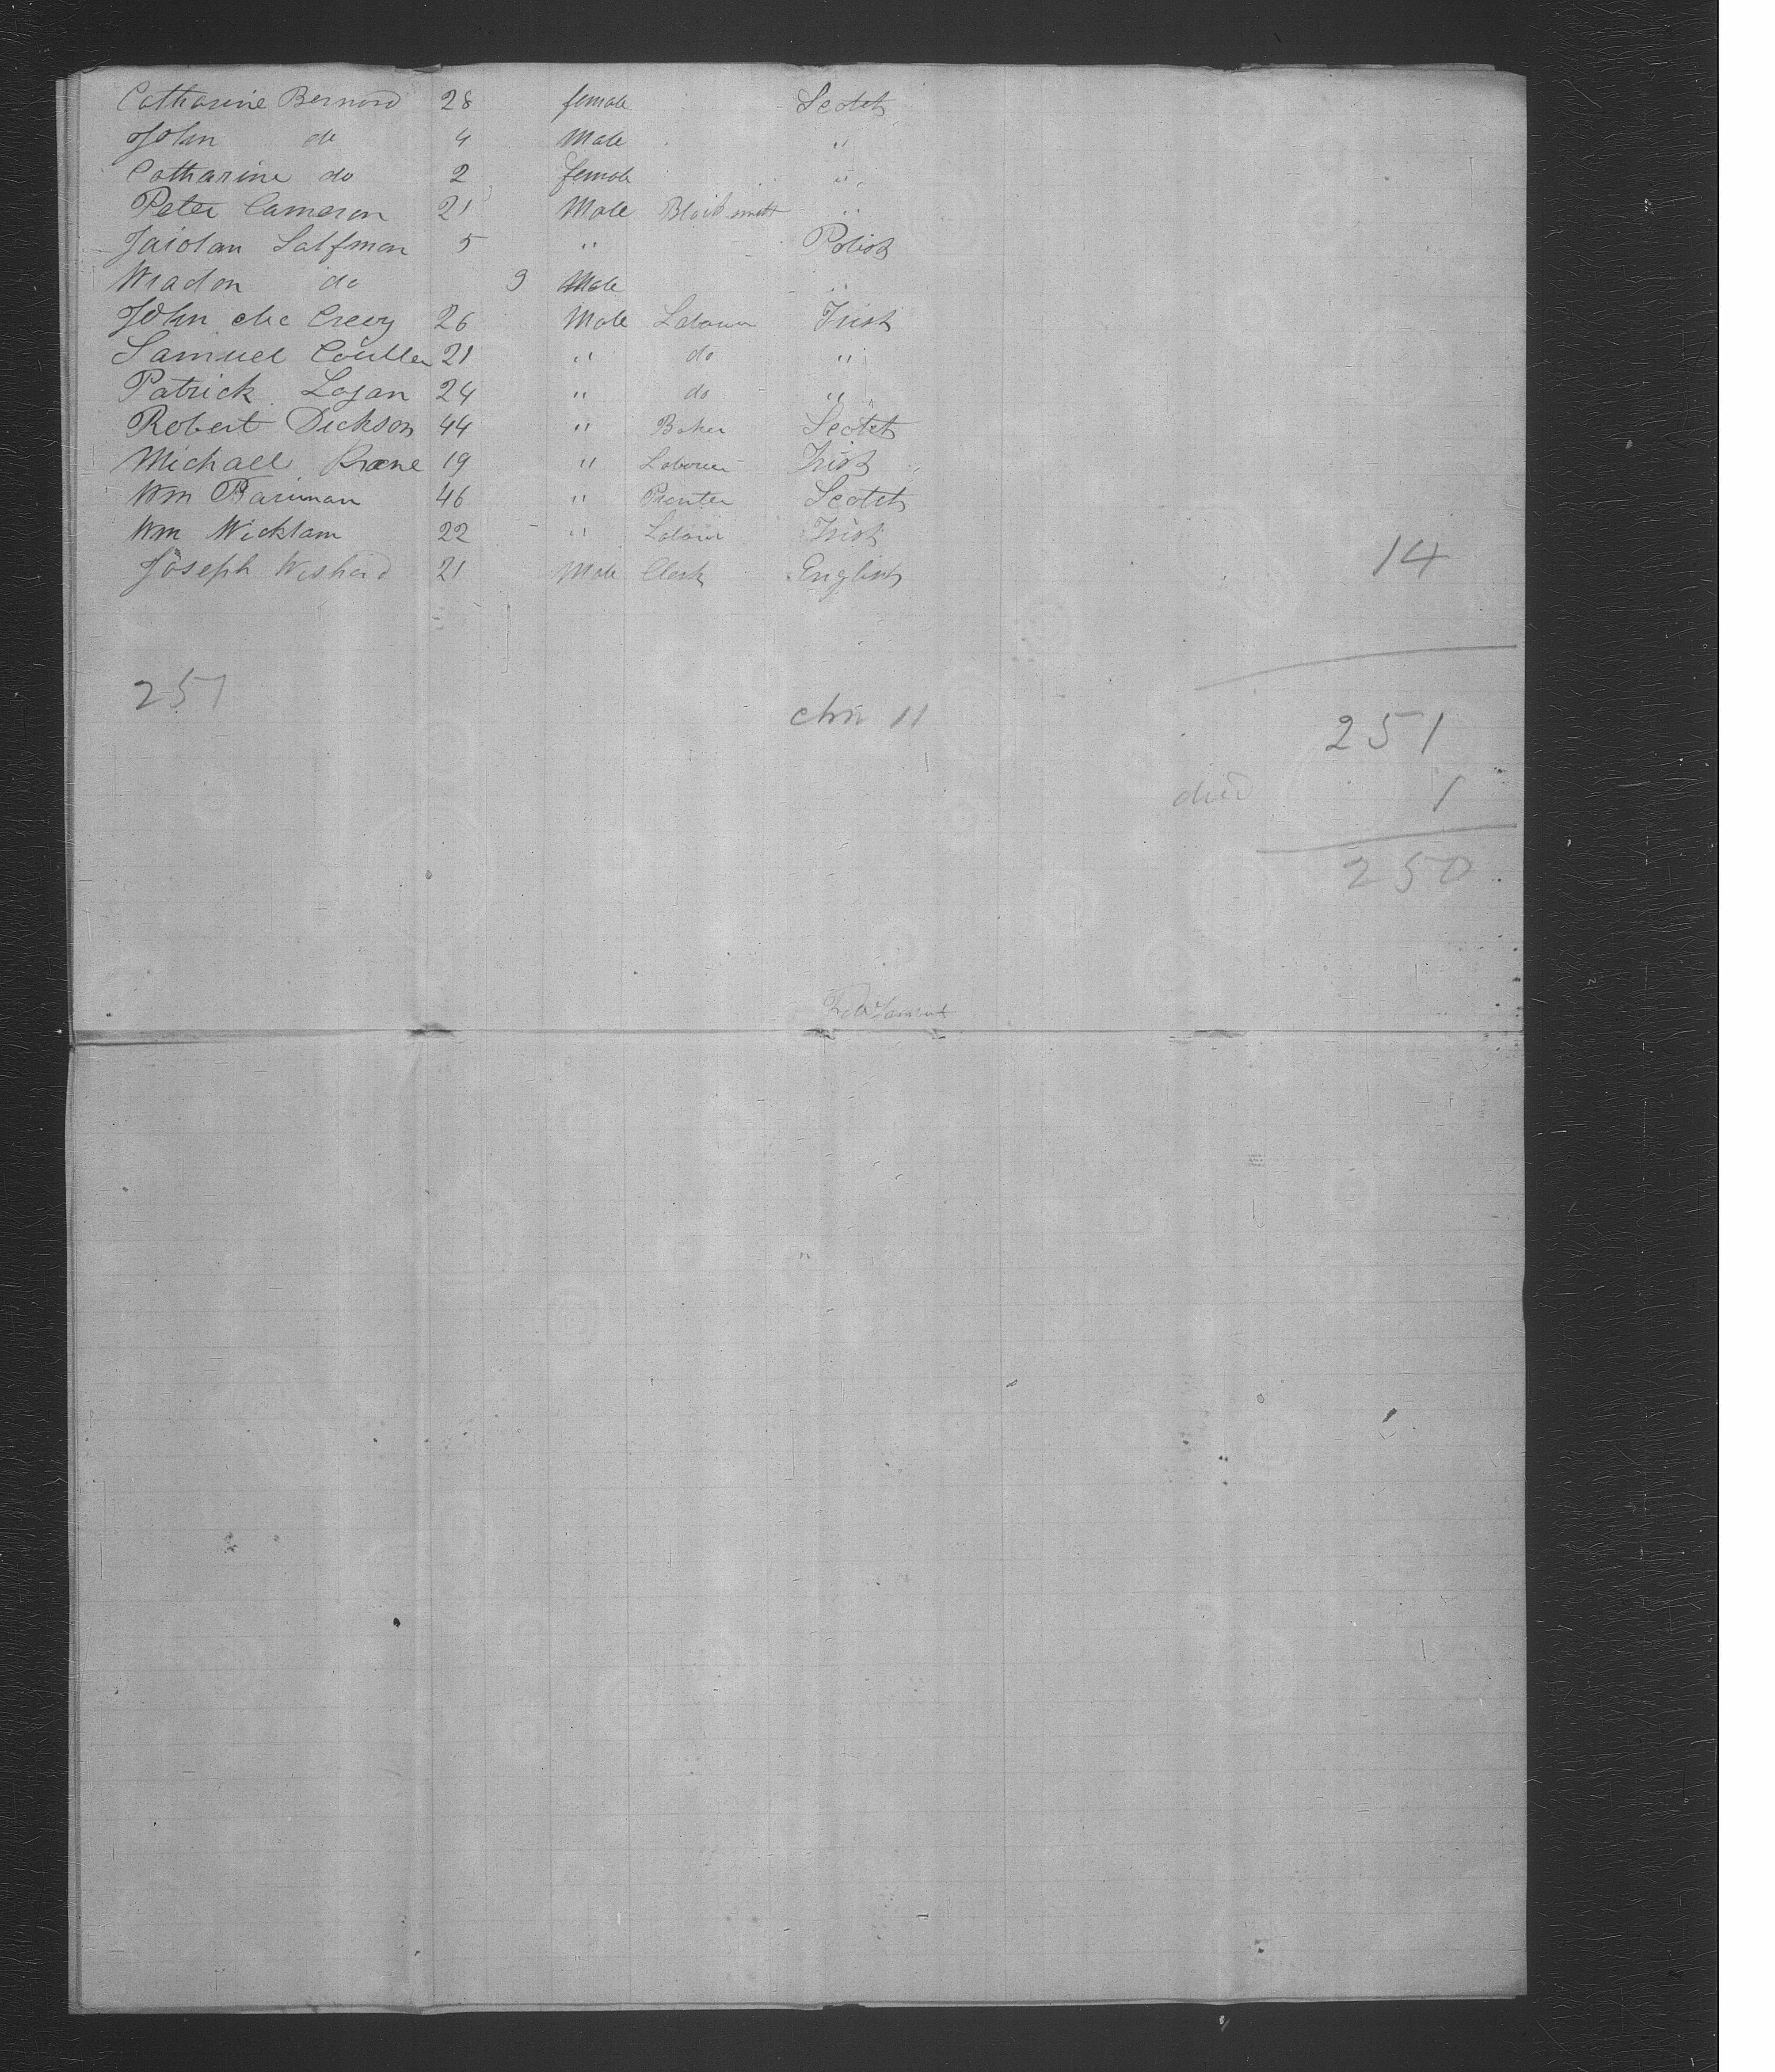 Catharine Bernard 28 female Scotch
John do 4 Male "
Catharine do 2 female "
Peter Cameron 21 Male Blacksmith "
Jaiolan Salfman 5 " Polish
Wradon do 9 Male "
John Mc Creevy 26 Male Labourer Irish
Samuel Coulter 21 " do "
Patrick Logan 24 " do "
Robert Dickson 44 " Baker Scotch
Michael Kane 19 " Labourer Irish
Wm Bariman 46 " Printer Scotch
Wm Wicklam 22 " Labour Irish
Joseph Wishard 21 Male Clerk English
14
251
11
251
died 1
250